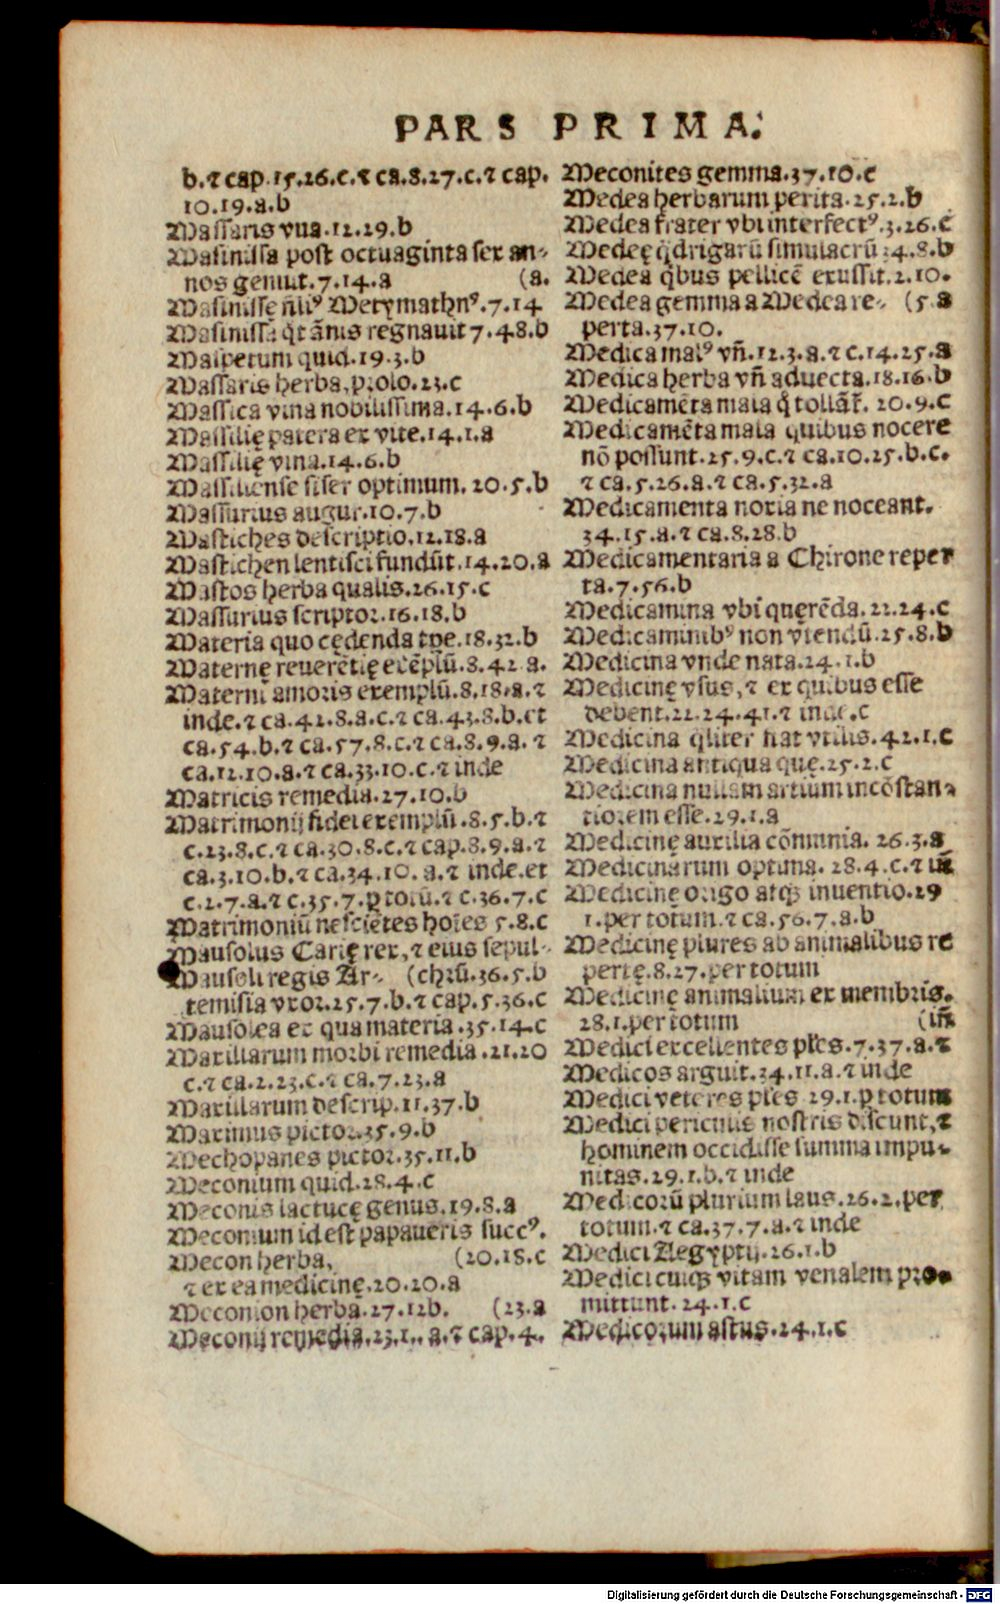 PARS PRIMA.
b.⁊ cap.15.26.c.⁊ ca.8.27.c.⁊ cap.
10.19.a.b
Massaris vua.12.29.b
Masinissa post octuaginta sex an-
nos genuit.7.14.a (a.
Masinissę filiꝰ Metymathnꝰ.7.14
Masinissa qt ānis regnauit 7.48.b
Maspetum quid.19.3.b
Massaris herba, prolo.23.c
Massica vina nobilissima.14.6.b
Massilię patera ex vite.14.1.a
Massilię vina.14.6.b
Massiliense siser optimum. 20.5.b
Massurius augur.10.7.b
Mastiches descriptio.12.18.a
Mastichen lentisci fundūt.14.20.a
Mastos herba qualis.26.15.c
Massurius scriptor.16.18.b
Materia quo cędenda tpe.18.32.b
Maternę reuerētię exēplū.8.42.a.
Materni amoris exemplū.8.18.a.⁊
inde.⁊ ca.42.8.a.c.⁊ ca.43.8.b.et
ca.54.b.⁊ ca.57.8.c.⁊ ca.8.9.a.⁊
ca.12.10.a.⁊ ca.33.10.c.⁊ inde
Matricis remedia.27.10.b
Matrimonij fidei exemplū.8.5.b.⁊
c.23.8.c.⁊ ca.30.8.c.⁊ cap.8.9.a.⁊
ca.3.10.b.⁊ ca.34.10.a.⁊ inde.et
c.2.7.a.⁊ c.35.7.ꝑ totū.⁊ c.36.7.c
Matrimoniū nesciētes hoīes 5.8.c
Mausolus Carię rex,⁊ eius sepul-
Mausoli regis Ar- (chrū.36.5.b
temisia vxor.25.7.b.⁊ cap.5.36.c
Mausolea ex qua materia.35.14.c
Maxillarum morbi remedia.21.20
c.⁊ ca.2.23.c.⁊ ca.7.23.a
Maxillarum descrip.11.37.b
Maximus pictor.35.9.b
Mechopanes pictor.35.11.b
Meconium quid.28.4.c
Meconis lactucę genus.19.8.a
Meconium id est papaueris succꝰ.
Mecon herba, (20.18.c
⁊ ex ea medicinę.20.20.a
Meconion herba.27.12b. (23.a
Meconij remedia.23.1..a.⁊ cap.4.
Meconites gemma.37.10.c
Medea herbarum perita.25.2.b
Medea frater vbi interfectꝰ.3.26.c
Medeę qdrigarū simulacrū 34.8.b
Medea qbus pellicē exussit.2.10.
Medea gemma a Medea re- (5.a
perta.37.10.
Medica malꝰ vn̄.12.3.a.⁊ c.14.25.a
Medica herba vn̄ aduecta.18.16.b
Medicamēta mala q tollāt. 20.9.c
Medicamēta mala quibus nocere
nō possunt.25.9.c.⁊ ca.10.25.b.c.
⁊ ca.5.26.a.⁊ ca.5.32.a
Medicamenta noxia ne noceant.
34.15.a.⁊ ca.8.28.b
Medicamentaria a Chirone reper
ta.7.56.b
Medicamina vbi querēda. 22.24.c
Medicaminibꝰ non vtendū.25.8.b
Medicina vnde nata.24.1.b
Medicinę vsus,⁊ ex quibus esse
debent.22.24.41.⁊ inde.c
Medicina qliter fiat vtilis.42.1.c
Medicina antiqua quę.25.2.c
Medicina nullam artium incōstan-
tiorem esse.29.1.a
Medicinę auxilia cōmunia. 26.3.a
Medicinarum optima. 28.4.c.⁊ in̄
Medicinę origo atqꝫ inuentio.29
1.per totum.⁊ ca.56.7.a.b
Medicinę plures ab animalibus re
pertę.8.27.per totum
Medicinę animalium ex membris.
28.1.per totum (in̄
Medici excellentes pl̄es.7.37.a.⁊
Medicos arguit.34.11.a.⁊ inde
Medici veteres pl̄es 29.1.ꝑ totum
Medici periculis nostris discunt,⁊
hominem occidisse summa impu-
nitas.29.1.b.⁊ inde
Medicorū plurium laus.26.2.per
totum.⁊ ca.37.7.a.⁊ inde
Medici Aegyptij.26.1.b
Medici cuiqꝫ vitam venalem pro-
mittunt. 24.1.c
Medicorum astus.24.1.c
Digitalisierung gefördert durch die Deutsche Forschungsgemeinschaft - DFG